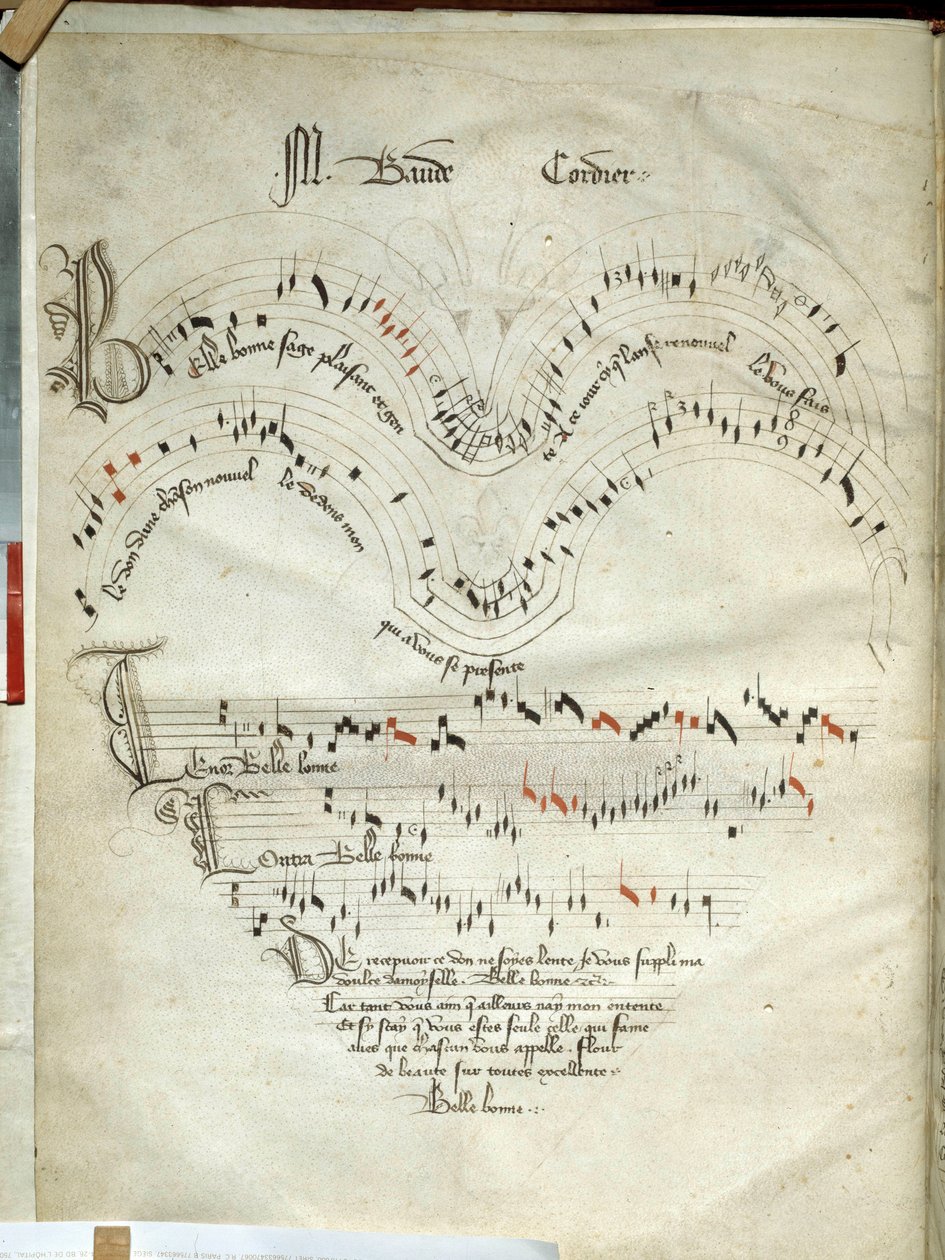 M. Baude Cordier
Belle bonne sage plaisant et gen
te A ce iour cy q lan se renouvel
le vous fais
le don dune chason nouvel
le dedens mon
qui a vous se presente
Tenor Belle bonne
Contra Belle bonne
DE recepvoir ce don ne soyes lente Je vous suppli ma
doulce damoyselle. Belle bonne etc
Car tant vous aim q ailleurs nay mon entente
Et sy scay q vous estes seule celle qui fame
aves que chascun vous appelle. Flour
de beaute sur toutes excellente
Belle bonne